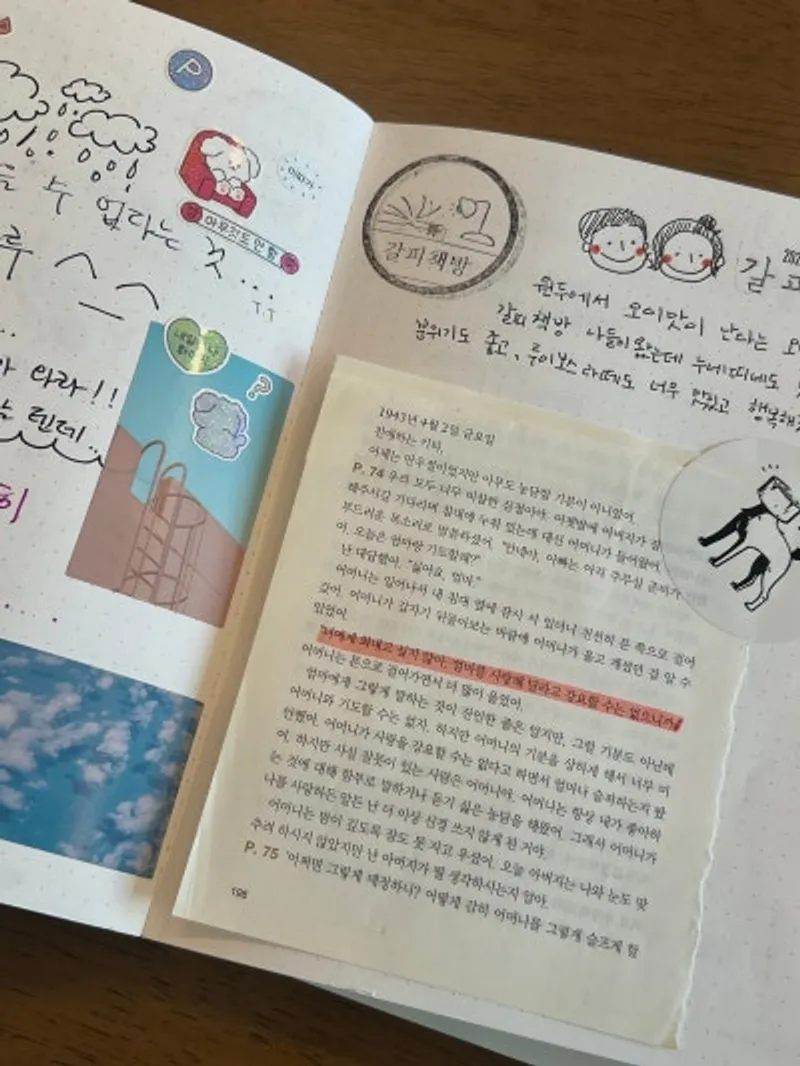 P
따가
아무것도 안 함
수 없다는
것...
ㅜㅜ
내일의 나
화이팅
와라!!
렌데..
갈피책방
원두에서 오이맛이 난다는
갈피책방 나들이 왔는데 누네띠네도
분위기도 좋고, 루이보스라떼도 너무 맛있고
1943년 4월 2일 금요일
친애하는 키티,
어제는 만우절이었지만 아무도 농담할 기분이 아니었어.
P. 74 우리 모두 너무 비참한 심정이야. 어젯밤에 아버지가
해주시길 기다리며 침대에 누워 있는데 대신 어머니가 들어왔어.
부드러운 목소리로 말씀하셨어. "안네야, 아빠는 아직 주무실 준비가
어. 오늘은 엄마랑 기도할래?"
난 대답했어. "싫어요, 엄마."
어머니는 일어나서 내 침대 옆에 잠시 서 있더니 천천히 문 쪽으로 걸어
갔어. 어머니가 갑자기 뒤돌아보는 바람에 어머니가 울고 계셨던 걸 알 수
있었어.
"너에게 화내고 싶지 않아. 엄마를 사랑해 달라고 강요할 수는 없으니까."
어머니는 문으로 걸어가면서 더 많이 울었어.
엄마에게 그렇게 말하는 것이 잔인한 줄은 알지만, 그럴 기분도 아닌데
어머니와 기도할 수는 없지. 하지만 어머니의 기분을 상하게 해서 너무 미
안했어. 어머니가 사랑을 강요할 수는 없다고 하면서 얼마나 슬퍼하는지 봤
어. 하지만 사실 잘못이 있는 사람은 어머니야. 어머니는 항상 내가 좋아하
는 것에 대해 함부로 말하거나 듣기 싫은 농담을 해왔어. 그래서 어머니가
나를 사랑하든 말든 난 더 이상 신경 쓰지 않게 된 거야.
어머니는 밤이 깊도록 잠도 못 자고 우셨어. 오늘 아버지는 나와 눈도 맞
추려 하시지 않았지만 난 아버지가 뭘 생각하시는지 알아.
P. 75 '어쩌면 그렇게 매정하니? 어떻게 감히 어머니를 그렇게 슬프게 할
198